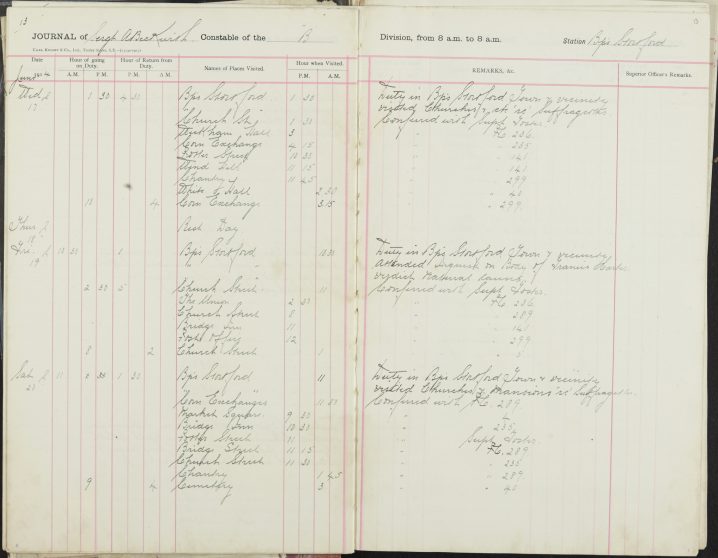 13
JOURNAL of Sergt Constable of the B Division, from 8 a.m. to 8 a.m. Station Bps Stortford
Date Hour of going on Duty. Hour of Return from Duty. Names of Places Visited. Hour when Visited. REMARKS, &c. Superior Officer's Remarks.
June 1914 A.M. P.M. A.M. P.M. P.M. A.M.
Wed 17 1 30 4 30 Bps Stortford 1 30 Duty in Bps Stortford Town & vicinity
visited Churches &c Suffragettes.
Church St 1 30 Conferred with Supt
Wickham Hall 3 PC 236
Corn Exchange 4 15 " 235
10 30 " 141
Wind Hill 11 15 " 141
Chantry 11 45 " 299
Hall 2 30 " 40
10 4 Corn Exchange 3.15 " 299
Thur 18 Rest Day
Fri 19 10 30 1 Bps Stortford 10 30 Duty in Bps Stortford Town & vicinity
" " Attended Inquest on Body of Francis
verdict Natural Causes.
2 30 5 Church Street 11 Conferred with Supt
The Union 2 30 PC 236
Church Street 8 " 289
Bridge Inn 11 " 141
Post Office 12 " 299
8 2 Church Street 1 " 5
Sat 20 11 6 30 1 30 Bps Stortford 11 Duty in Bps Stortford Town & vicinity
" " visited Churches & Mansions re Suffragettes.
Corn Exchange 11 30 Conferred with PC 289
Market Square 9 30 " 4
Bridge Inn 10 30 " 235
Street 11 Supt
Bridge Street 11 15 PC 289
Church Street 11 30 " 235
Chantry 1 45 " 289
9 4 Cemetery 3 " 40